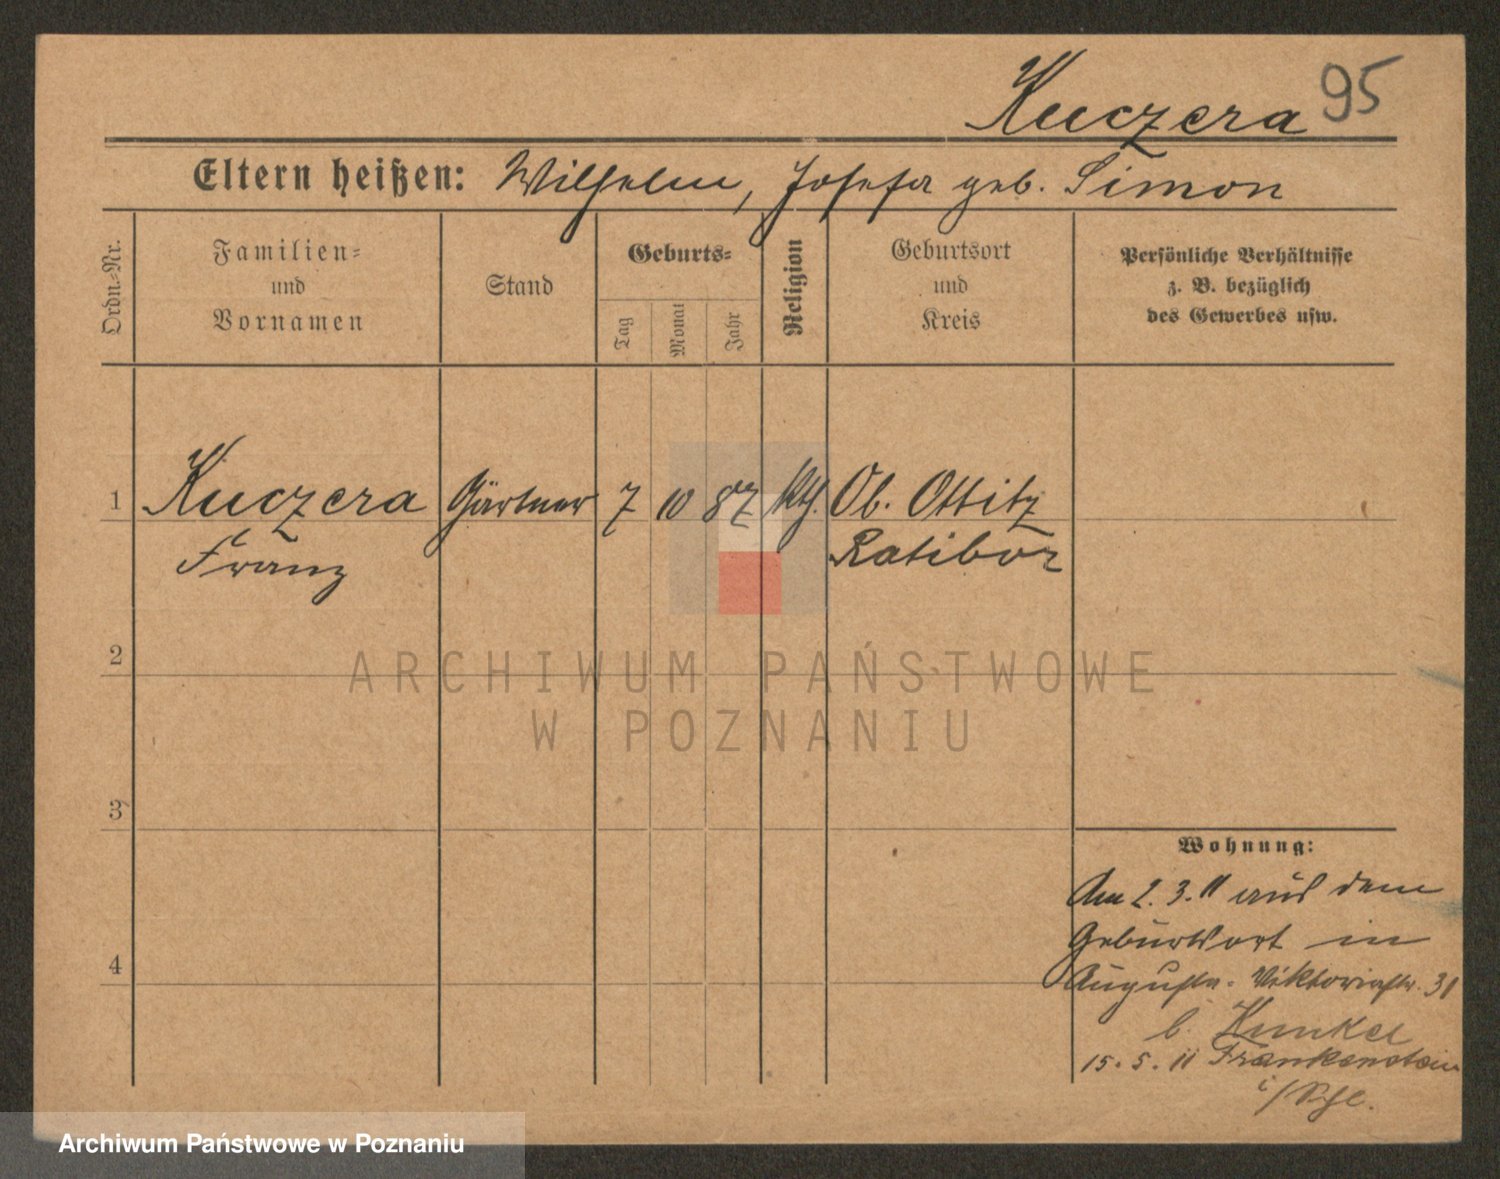 Kuczera 95
Eltern heißen: Wilhelm, Josefa geb. Simon
Ordn.-Nr.
Familien-
und
Vornamen
Stand
Geburts-
Tag
Monat
Jahr
Religion
Geburtsort
und
Kreis
Persönliche Verhältnisse
z. B. bezüglich
des Gewerbes usw.
1 Kuczera Gärtner 7 10 87 kth. Ob. Ottitz
Franz Ratibor
2
3
4
Wohnung:
Am 2.3.11 aus dem
Geburtsort in
Auguste-Viktoriastr. 31
b. Kunkel
15.5.11 Frankenstein
i/Schl.
ARCHIWUM PAŃSTWOWE
W POZNANIU
Archiwum Państwowe w Poznaniu